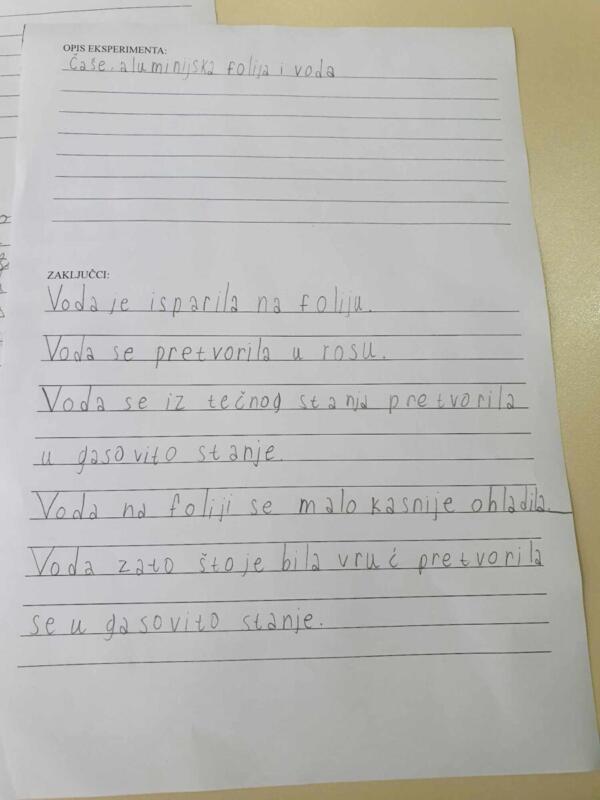 OPIS EKSPERIMENTA:
Čaše, aluminijska folija i voda
ZAKLJUČCI:
Voda je isparila na foliju.
Voda se pretvorila u rosu.
Voda se iz tečnog stanja pretvorila
u gasovito stanje.
Voda na foliji se malo kasnije ohladila.
Voda zato što je bila vruć pretvorila
se u gasovito stanje.